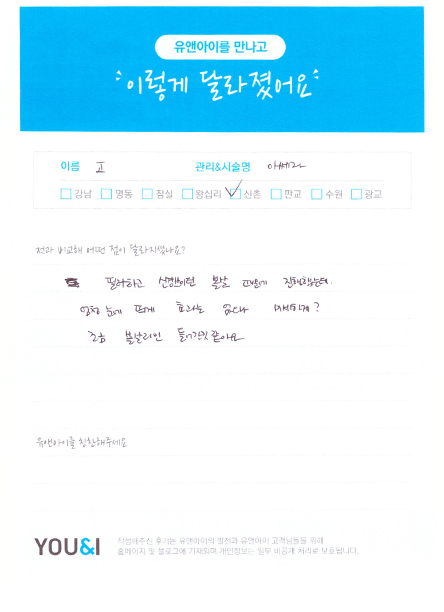 유앤아이를 만나고
이렇게 달라졌어요
이름 고 관리&시술명 아쎄라
강남 명동 잠실 왕십리 신촌 판교 수원 광교
전과 비교해 어떤 점이 달라지셨나요?
필라하고 신경쓰이던 볼살 때문에
엄청 눈에 띄게 효과는 없다 미세하게?
조금 볼살라인 들어간것 같아요
유앤아이를 칭찬해주세요
YOU&I
작성해주신 후기는 유앤아이의 발전과 유앤아이 고객님들을 위해
홈페이지 및 블로그에 기재되며 개인정보는 일부 비공개 처리로 보호됩니다.